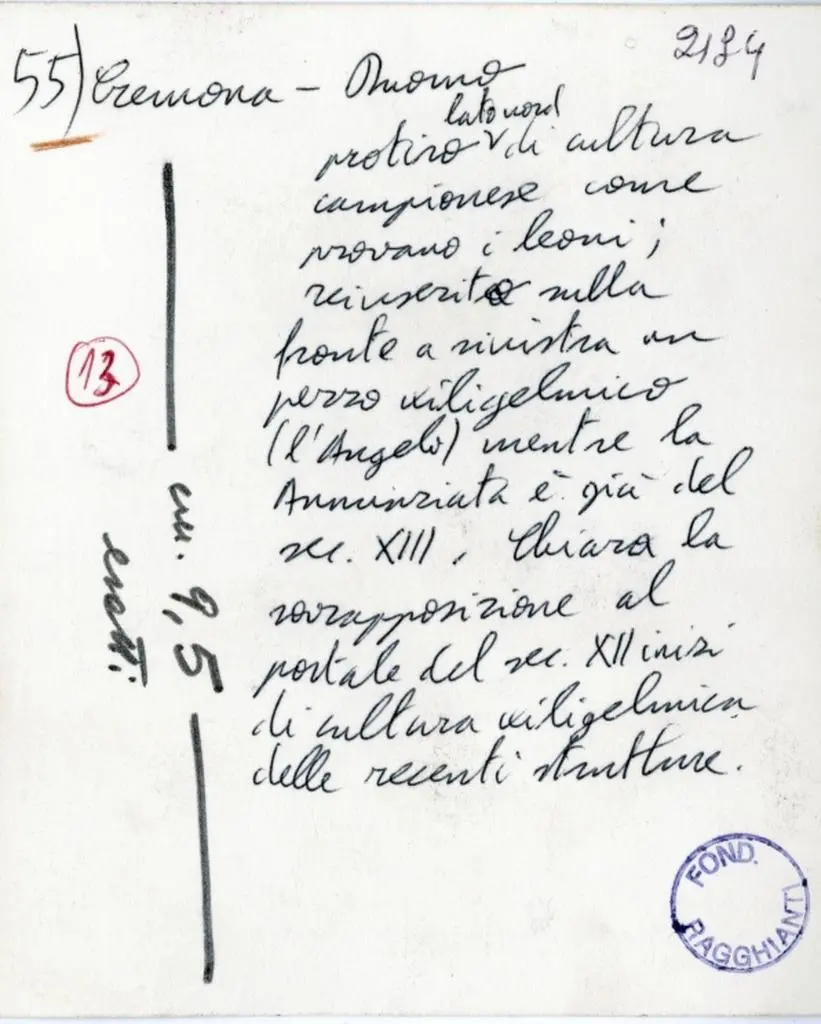 2134
55) Cremona - Duomo
lato nord
protiro di cultura
campionese come
provano i leoni;
reinserito sulla
fronte a sinistra un
pezzo wiligelmico
(l'Angelo) mentre la
Annunziata è già del
sec. XIII. Chiara la
sovrapposizione al
portale del sec. XII inizi
di cultura wiligelmica
delle recenti strutture.
13
cm. 9,5
esatti
FOND.
RAGGHIANTI